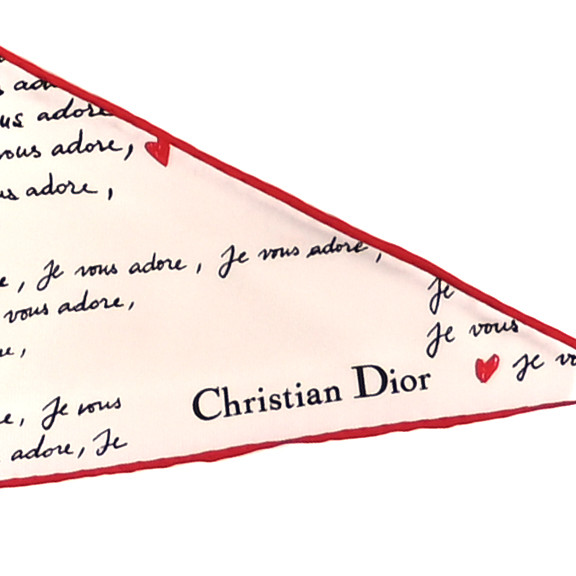 adore
vous adore,
us adore,
Je vous adore, Je vous adore,
Je
vous adore,
Je vous
Je
Je vous
adore, Je
Christian Dior